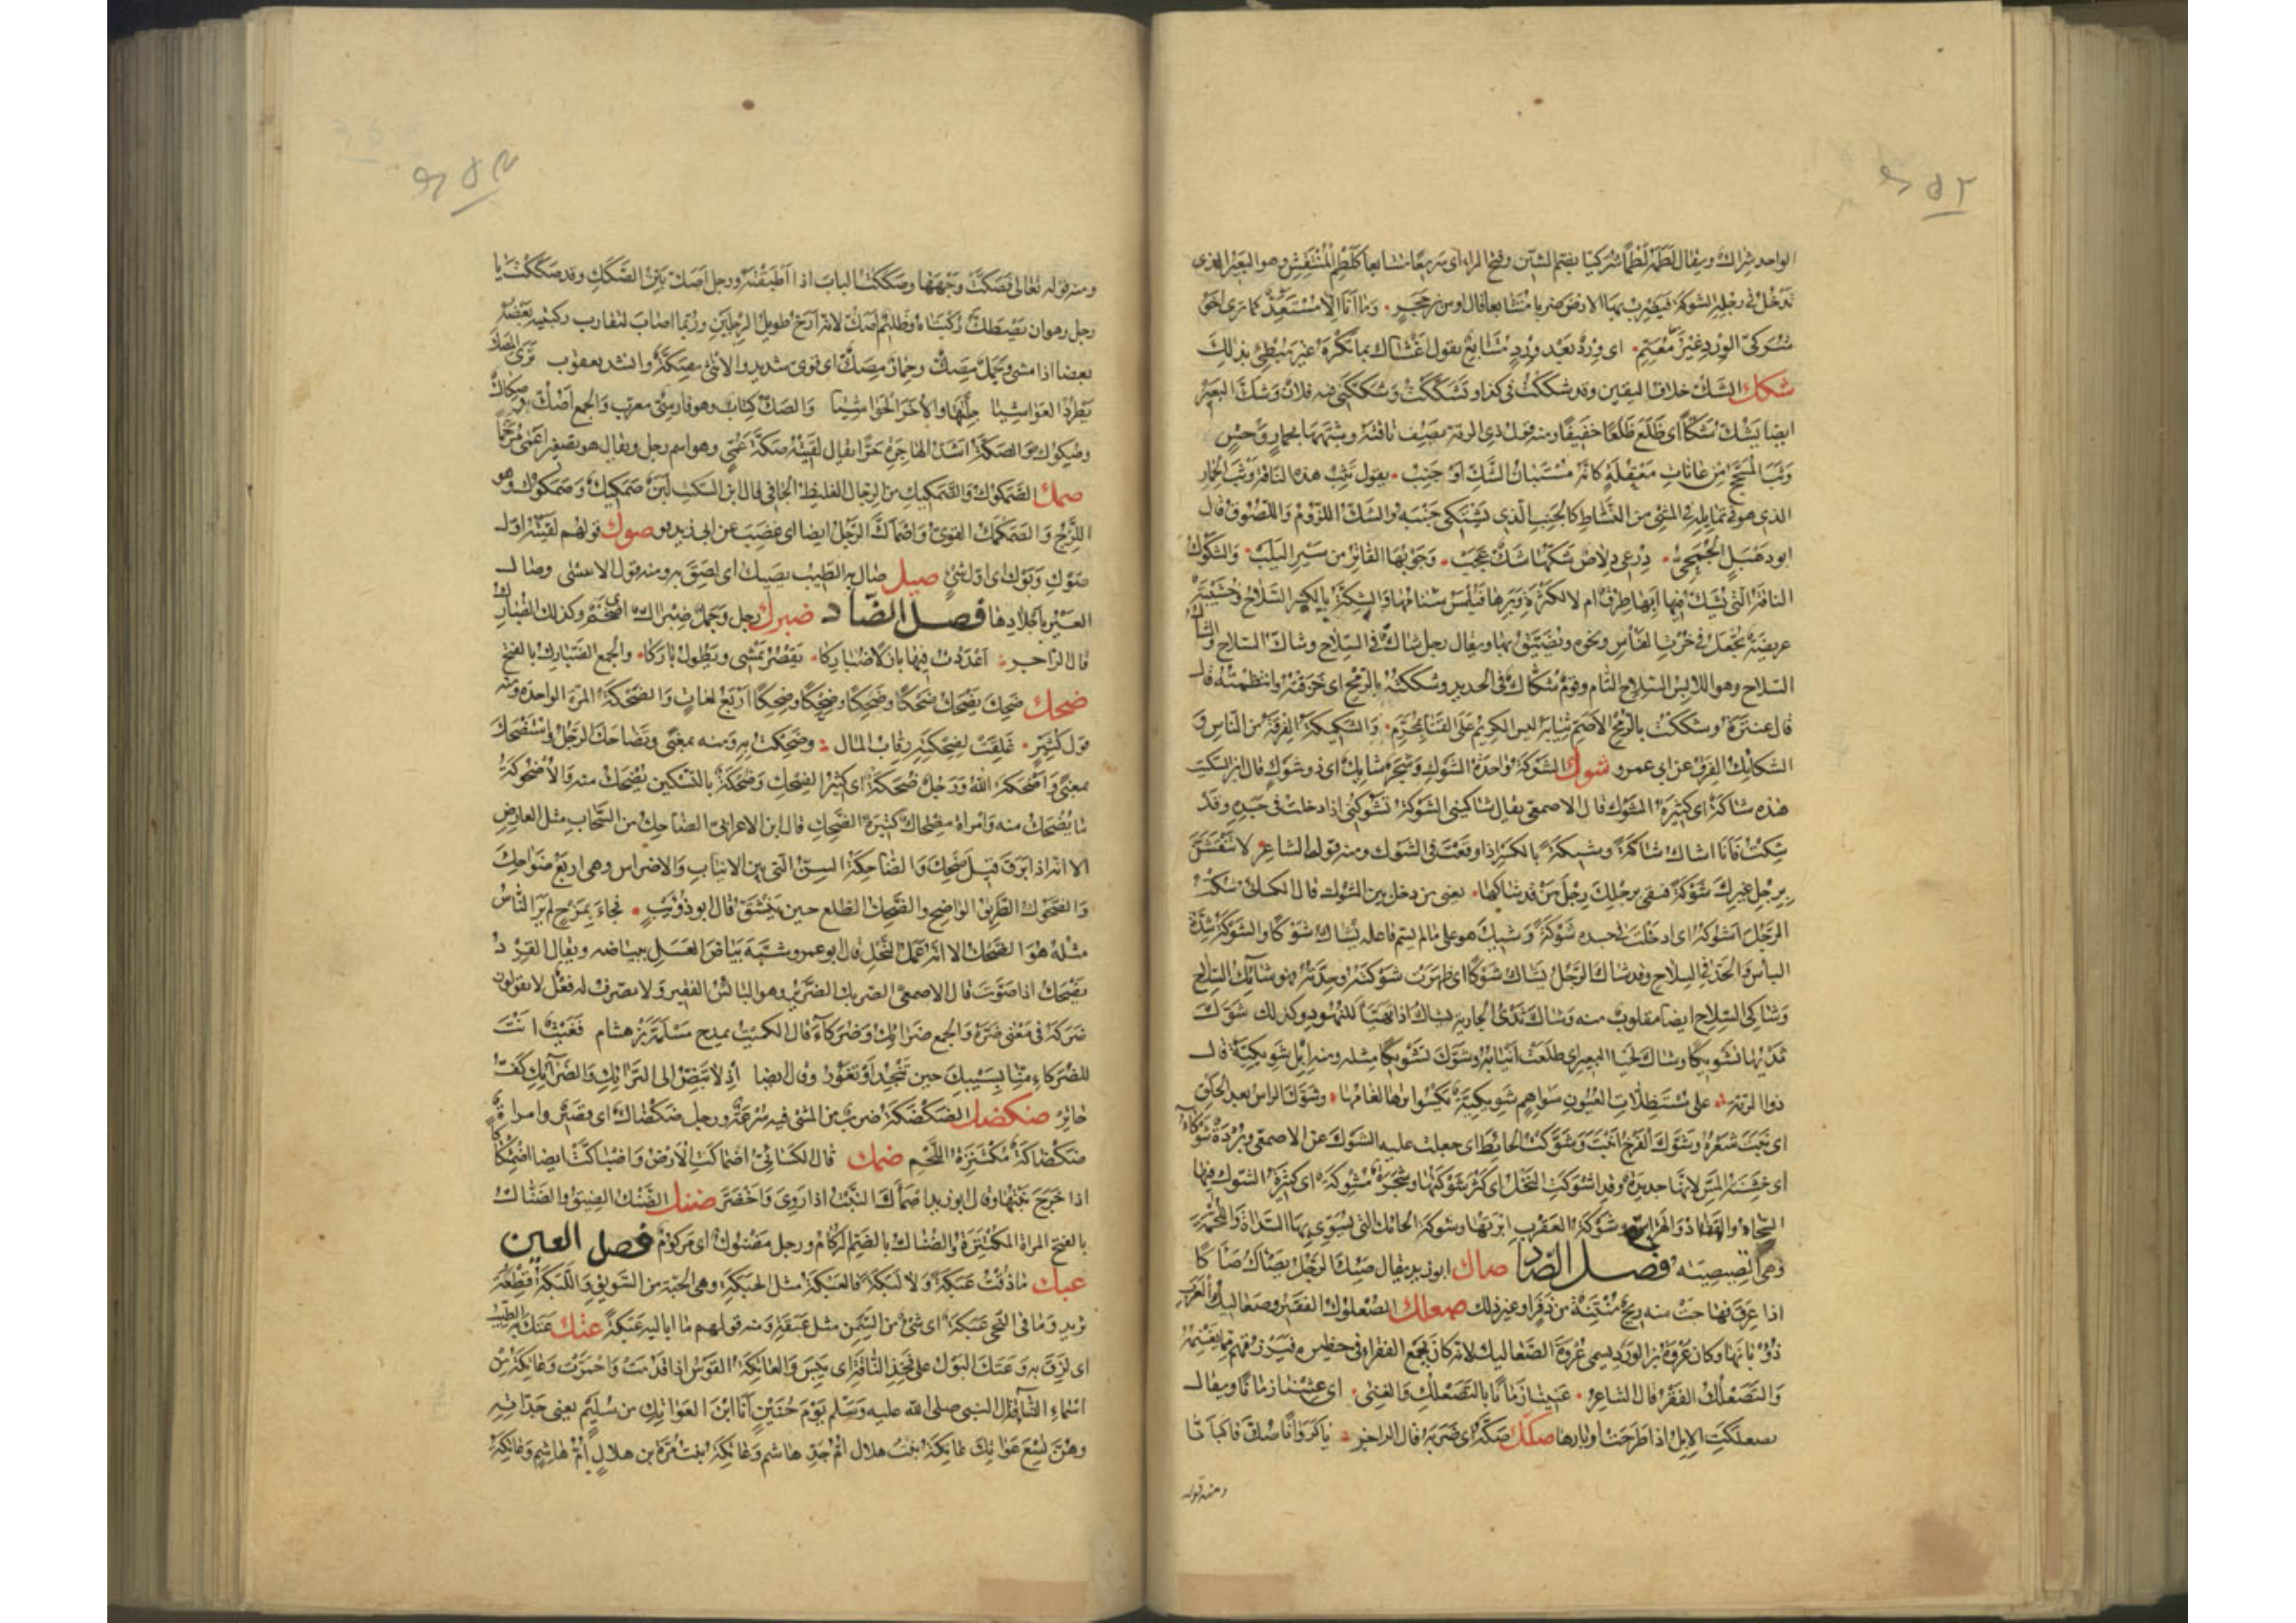 الواحد شراك ويقال لطمه لطما شركيا بضم الشين وفتح الراء اى سريعا متتابعا كلطم المنتقش وهو البعير الذى
تدخل فى رجله الشوكة فيضرب بها الارض ضربا متتابعا قال اوس بن حجر وما انا الا مستعد كما ترى اخو
شركى الورد غير معتم اى ورد بعد ورد متتابع يقول اغشاك بما تكره غير مبطئ بذلك
شكك الشك خلاف اليقين وقد شككت فى كذا وتشككت وشككنى فيه فلان وشك البعير
ايضا يشك شكا اى ظلع ظلعا خفيفا ومنه قول ذى الرمة يصف ناقته وشبهها بحمار وحش
وثب المسحج من عانات معقلة كانه مستبان الشك او جنب يقول تثب هذه الناقة وثب الحمار
الذى هو فى تمايله فى المشى من النشاط كالجنب الذى يشتكى جنبه والشك اللزوم واللصوق قال
ابو دهبل الجمحى درعى دلاص شكها شك عجب وجوبها القاتر من سير اليلب والشكوك
الناقة التى يشك فيها ابها طرق ام لا لكثرة وبرها فيلمس سنامها والشكة بالكسر السلاح وخشيبة
عريضة تجعل فى خرت الفأس ونحوه ويضيق بها ويقال رجل شاك فى السلاح وشاك السلاح والشاك
السلاح وهو اللابس السلاح التام وقوم شكاك فى الحديد وشككته بالرمح اى خرقته وانتظمته قال
قال عنترة وشككت بالرمح الاصم ثيابه ليس الكريم على القنا بمحرم والشكيكة الفرقة من الناس و
الشكائك الفرق عن ابى عمرو شوك الشوكة واحدة الشوك وشجر شايك اى ذو شوك قال ابن السكيت
هذه شاكة اى كثيرة الشوك قال الاصمعى يقال شاكتنى الشوكة تشوكنى اذا دخلت فى جسده وقد
شكت فانا اشاك شاكة وشيكة بالكسر اذا وقعت فى الشوك ومنه قول الشاعر لا تنقشن
برجل غيرك شوكة فتقى برجلك رجل من قد شاكها يعنى من دخل بين الشوك قال الكسائى شكت
الرجل اشوكه اى ادخلت فى جسده شوكة وشيك هو على ما لم يسم فاعله يشاك شوكا والشوكة شدة
البأس والحد فى السلاح وقد شاك الرجل يشاك شوكا اى ظهرت شوكته وحدته فهو شائك السلاح
وشاكى السلاح ايضا مقلوب منه وشاك ثدى الجارية يشاك اذا تهيأ للنهود وكذلك شوك
ثديها تشويكا وشاك لحيا البعير اى طلعت انيابه وشوك تشويكا مثله ومنه ابل شويكية قال
ذو الرمة على مستظلات العيون سواهم شويكية يكسو براها لغامها وشوك الراس بعد الحلق
اى نبت شعره وشوك الفرخ انبت وشوكت الحائط اى جعلت عليه الشوك عن الاصمعى وبردة شوكاء
اى خشنة المس لانها جديدة وقد اشوكت النخل اى كثر شوكها وشجرة مشوكة اى كثيرة الشوك فيها
السحاء والقتاد والهراس وشوكة العقرب ابرتها وشوكة الحائك التى يسوى بها السداة واللحمة
وهى الصيصية فصل الصاد صاك ابو زيد يقال صئك الرجل يصأك صأكا
اذا عرق فهاجت منه ريح منتنة من ذفر او غير ذلك صعلك الصعلوك الفقير وصعاليك العرب
ذؤبانها وكان عروة بن الورد يسمى عروة الصعاليك لانه كان يجمع الفقراء فى حظيرة فيرزقهم مما يغنمه
والتصعلك الفقر قال الشاعر غنينا زمانا بالتصعلك والغنى اى عشنا زمانا ويقال
تصعلكت الابل اذا طرحت اوبارها صكك صكه اى ضربه قال الراجز يا كروانا صك فاكبأنا
ومنه قوله
ومنه قوله تعالى فصكت وجهها وصككت الباب اذا اطبقته ورجل اصك بين الصكك وقد صككت يا
رجل وهو ان تصطك ركبتاه وظليم اصك لانه ارح طويل الرجلين وربما اصاب لتقارب ركبتيه بعضها
بعضا اذا مشى وجمل مصك وحمار مصك اى قوى شديد والانثى مصكة وانشد يعقوب ترى المصك
يطرد العواشيا جلتها والاخر الحواشيا والصك كتاب وهو فارسى معرب والجمع اصك وصكاك
وصكوك والصكة اشد الهاجرة حرا يقال لقيته صكة عمى وهو اسم رجل ويقال هو تصغير اعمى مرخما
صمك الصمكوك والصمكيك من الرجال الغليظ الجافى قال ابن السكيت لبن صمكيك وصمكوك وهو
اللزج والصمكمك القوى واصمأك الرجل ايضا اى غضب عن ابى زيد صوك قولهم لقيته اول
صوك وبوك اى اول شئ صيك صاك به الطيب يصيك اى لصق به ومنه قول الاعشى وصاك
العبير باجلادها فصل الضاد ضبرك رجل وجمل ضبراك اى ضخم وكذلك الضبارك
قال الراجز اعددت فيها بازلا ضباركا يقصر يمشى ويطول باركا والجمع الضبارك بالفتح
ضحك ضحك يضحك ضحكا وضحكا وضحكا وضحكا اربع لغات والضحكة المرة الواحدة ومنه
قول كثير غلقت لضحكته رقاب المال وضحكت به ومنه بمعنى وتضاحك الرجل واستضحك
بمعنى واضحكه الله ورجل ضحكة اى كثير الضحك وضحكة بالتسكين يضحك منه والاضحوكة
ما يضحك منه وامراة مضحاك كثيرة الضحك قال ابن الاعرابى الضاحك من السحاب مثل العارض
الا انه اذا برق قيل ضحك والضاحكة السن التى بين الانياب والاضراس وهى اربع ضواحك
والضحوك الطريق الواضح والضحك الطلع حين ينشق قال ابو ذؤيب فجاء بمزج لم ير الناس
مثله هو الضحك الا انه عمل النحل قال ابو عمرو شبه بياض العسل ببياضه ويقال القرد
يضحك اذا صوت قال الاصمعى الضريك الضرير وهو البائس الفقير ولا يصرف له فعل لا يقولون
ضركه فى معنى ضره والجمع ضرائك وضركاء قال الكميت يمدح مسلمة بن هشام فغيث انت
للضركاء منا بسيبك حين تنجد او تغور وقال ايضا اذ لا تبض الى الترائك والضرائك كف
جازر ضكضك الضكضكة ضرب من المشى فيه سرعة ورجل ضكضاك اى قصير وامراة
ضكضاكة مكتنزة اللحم ضمك قال الكسائى اضمأكت الارض واضبأكت ايضا اضمئكاكا
اذا خرج نبتها وقال ابو زيد اضمأك النبت اذا روى واخضر ضنك الضنك الضيق والضناك
بالفتح المراة المكتنزة والضناك بالضم الزكام ورجل مضنوك اى مزكوم فصل العين
عبك ما ذقت عبكة ولا لبكة فالعبكة مثل الحبكة وهى الحبة من السويق واللبكة قطعة
ثريد وما فى النحى عبكة اى شئ من السمن مثل عبقة ومنه قولهم ما اباليه عبكة عتك عتك به الطيب
اى لزق به وعتك البول على فخذ الناقة اى يبس والعاتكة القوس اذا قدمت واحمرت وعاتكة من
اسماء النساء قال النبى صلى الله عليه وسلم يوم حنين انا ابن العواتك من سليم يعنى جداته
وهن تسع عواتك عاتكة بنت هلال ام جد هاشم وعاتكة بنت مرة بن هلال ام هاشم وعاتكة